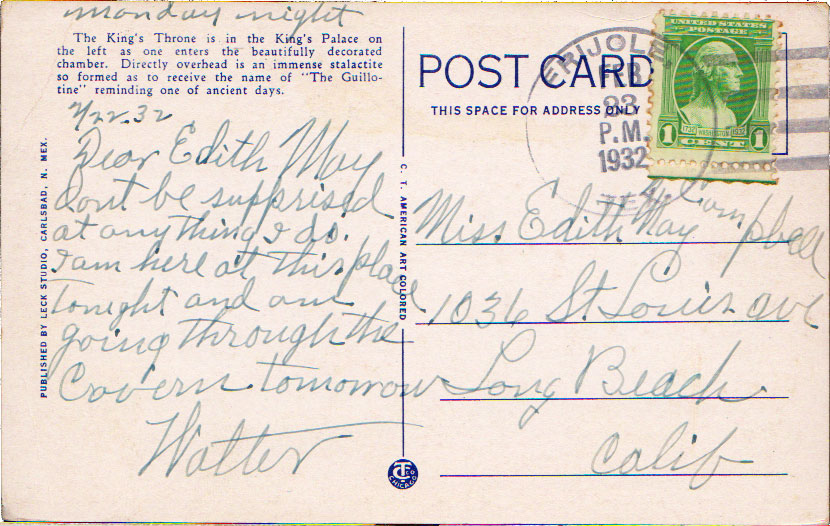 monday night
The King's Throne is in the King's Palace on
the left as one enters the beautifully decorated
chamber. Directly overhead is an immense stalactite
so formed as to receive the name of "The Guillo-
tine" reminding one of ancient days.
2/22.32
Dear Edith May
dont be supprised
at anything I do.
I am here at this place
tonight and am
going through the
Cavern tomorrow
Walter
PUBLISHED BY LECK STUDIO, CARLSBAD, N. MEX.
C. T. AMERICAN ART COLORED
C T CO CHICAGO
POST CARD
THIS SPACE FOR ADDRESS ONLY
FRIJOLE
FEB
23
P.M.
1932
TEX
UNITED STATES
POSTAGE
1732 WASHINGTON 1932
1 CENT 1
Miss Edith May Campbell
1036 St. Louis ave
Long Beach
Calif